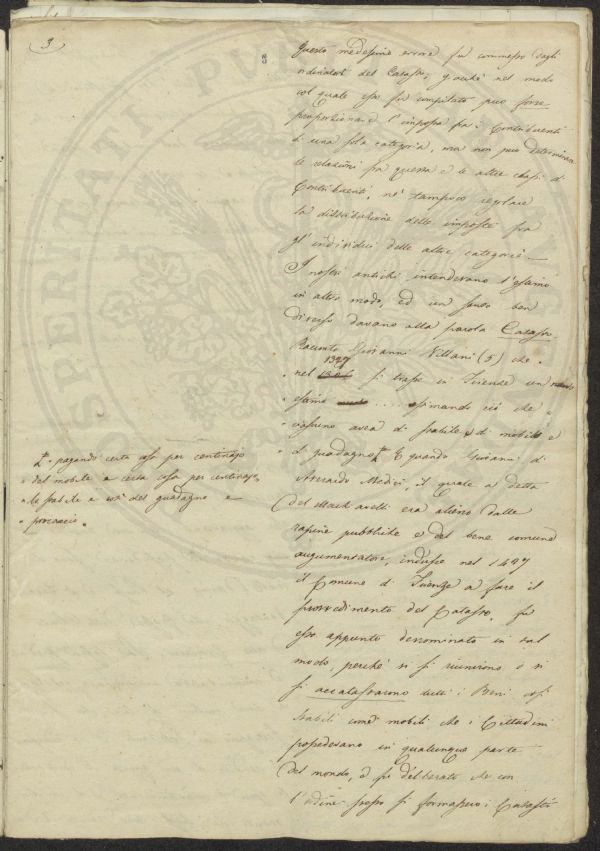 3
Questo medesimo errore fu commesso dagli
ordinatori del Catasto, giacchè nel modo
col quale esso fu compilato può forse
proporzionare l'imposta fra i Contribuenti
di una sola categoria, ma non può determinare
le relazioni fra questa e le altre classi di
Contribuenti, nè tampoco regolare
la distribuzione delle imposte fra
gl'individui delle altre categorie. —
I nostri antichi intendevano l'estimo
in altro modo, ed un senso ben
diverso davano alla parola Catasto.
Racconta Giovanni Villani (5) che
1327
" nel si trasse in Firenze un nuovo
" estimo .... estimando ciò che
" ciascuno avea di stabile e di mobile e
" di guadagno E quando Giovanni di
Averardo Medici, il quale a detta
del Machiavelli era alieno dalle
rapine pubbliche e del bene comune
augumentatore, indusse nel 1427
il Comune di Firenze a fare il
provvedimento del Catasto, fu
esso appunto denominato in tal
modo, perchè vi si riunirono e vi
si accatastarono tutti i Beni così
stabili come mobili che i Cittadini
possedevano in qualunque parte
del mondo, e fu deliberato che con
l'ordine stesso si formassero i Catasti
pagando certa cosa per centinajo
" del mobile e certa cosa per centinajo
" lo stabile e così del guadagno e
" procaccio.
SPERIATI PVB